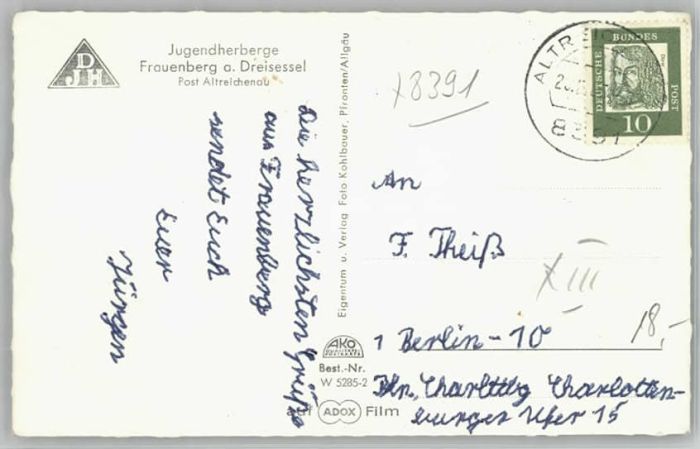 DJH
Jugendherberge
Frauenberg a. Dreisessel
Post Altreichenau
Die herzlichsten Grüße
aus Frauenberg
sendet Euch
Euer
Jürgen
Eigentum u. Verlag Foto Kohlbauer, Pfronten/Allgäu
AKO
Best.-Nr.
W 5285-2
auf ADOX Film
x8391
DEUTSCHE BUNDES POST
10
An
F. Theiß
XIII
18,-
1 Berlin-10
Bln. Charlttbg Charlotten-
burger Ufer 15